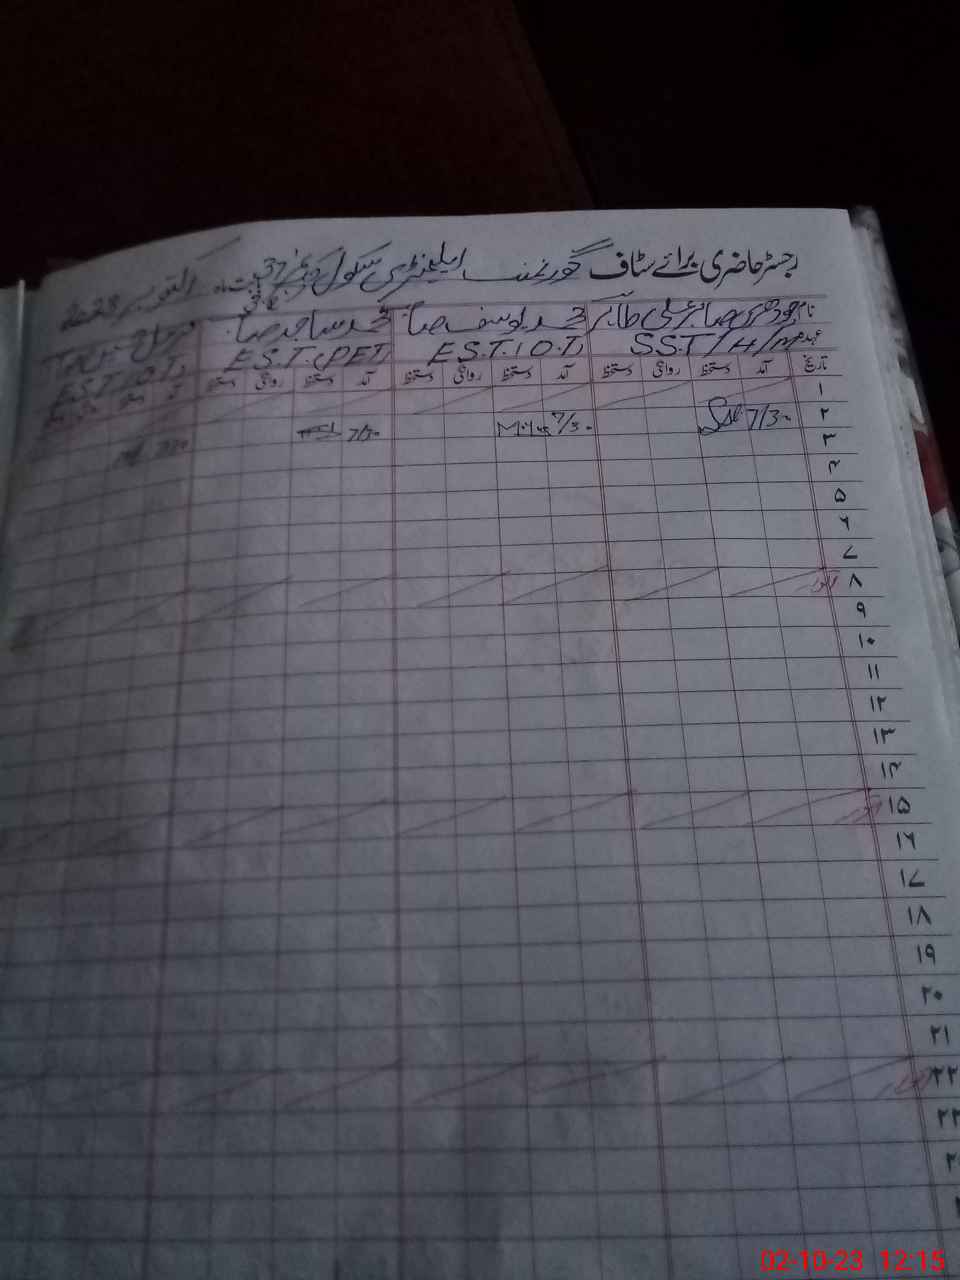 رجسٹر حاضری برائے سٹاف گورنمنٹ ایلیمنٹری سکول 37 بابت ماہ اکتوبر
نام چودھری صابر علی طاہر محمد یوسف صاحب محمد ساجد صاحب
عہدہ SST/H/M E.S.T.(O.T) E.S.T.(PET) E.S.T(O.T)
تاریخ آمد دستخط روانگی دستخط آمد دستخط روانگی دستخط آمد دستخط روانگی دستخط آمد
۱
۲ 7/30 7/30 7/30 7/30
۳
۴
۵
۶
۷
۸ اتوار
۹
۱۰
۱۱
۱۲
۱۳
۱۴
۱۵ اتوار
۱۶
۱۷
۱۸
۱۹
۲۰
۲۱
۲۲ اتوار
۲۳
02-10-23 12:15